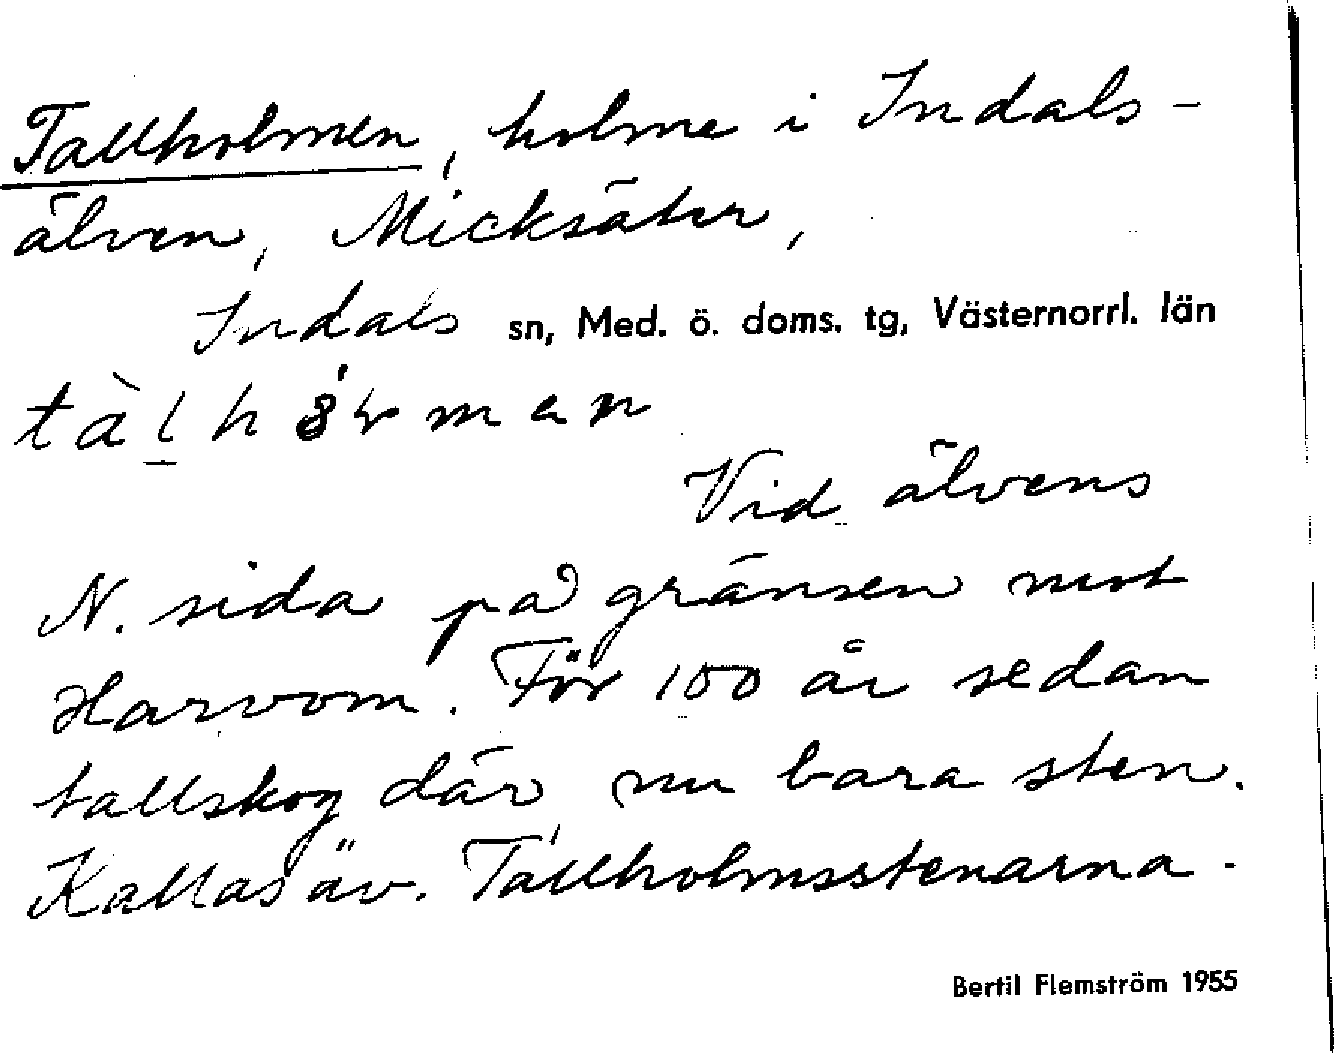 Tallholmen, holme i Indals-
älven, Micksäter,
Indals sn, Med. ö. doms. tg, Västernorrl. län
Vid älvens
N. sida på gränsen mot
Harvom. För 100 år sedan
tallskog där, nu bara sten.
Kallas äv. Tallholmsstenarna.
Bertil Flemström 1955